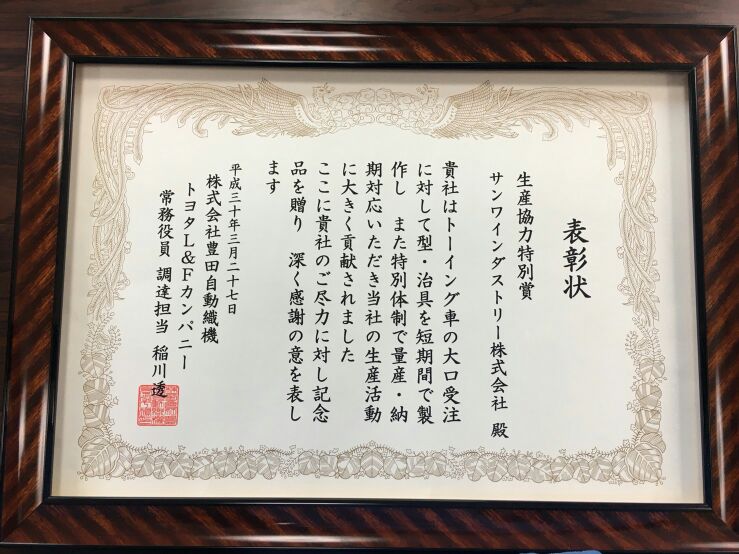 表彰状
生産協力特別賞
サンワインダストリー株式会社 殿
貴社はトーイング車の大口受注
に対して型・治具を短期間で製
作し また特別体制で量産・納
期対応いただき当社の生産活動
に大きく貢献されました
ここに貴社のご尽力に対し記念
品を贈り 深く感謝の意を表し
ます
平成三十年三月二十七日
株式会社豊田自動織機
トヨタL&Fカンパニー
常務役員 調達担当 稲川透